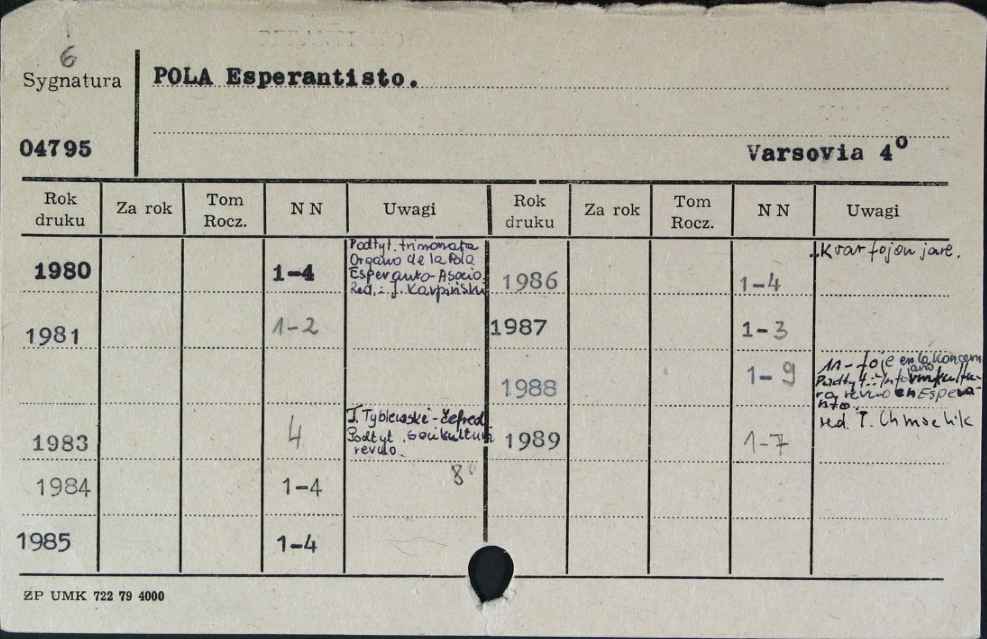 6
Sygnatura
POLA Esperantisto.
04795
Varsovia 4⁰
Rok druku Za rok Tom Rocz. N N Uwagi Rok druku Za rok Tom Rocz. N N Uwagi
1980 1-4
Podtyt. trimonata
Organo de la Pola
Esperanto-Asocio
Red.: J. Karpiński
1986 1-4
Kvarfojon jare.
1981 1-2
1987 1-3
1988 1-9
11-foje en la
Podtyt.:
revuo en Espe
1983 4
J. Tyblewski-
Podtyt.
revuo.
1989 1-7
red. T. Chmielik
1984 1-4
8⁰
1985 1-4
ZP UMK 722 79 4000